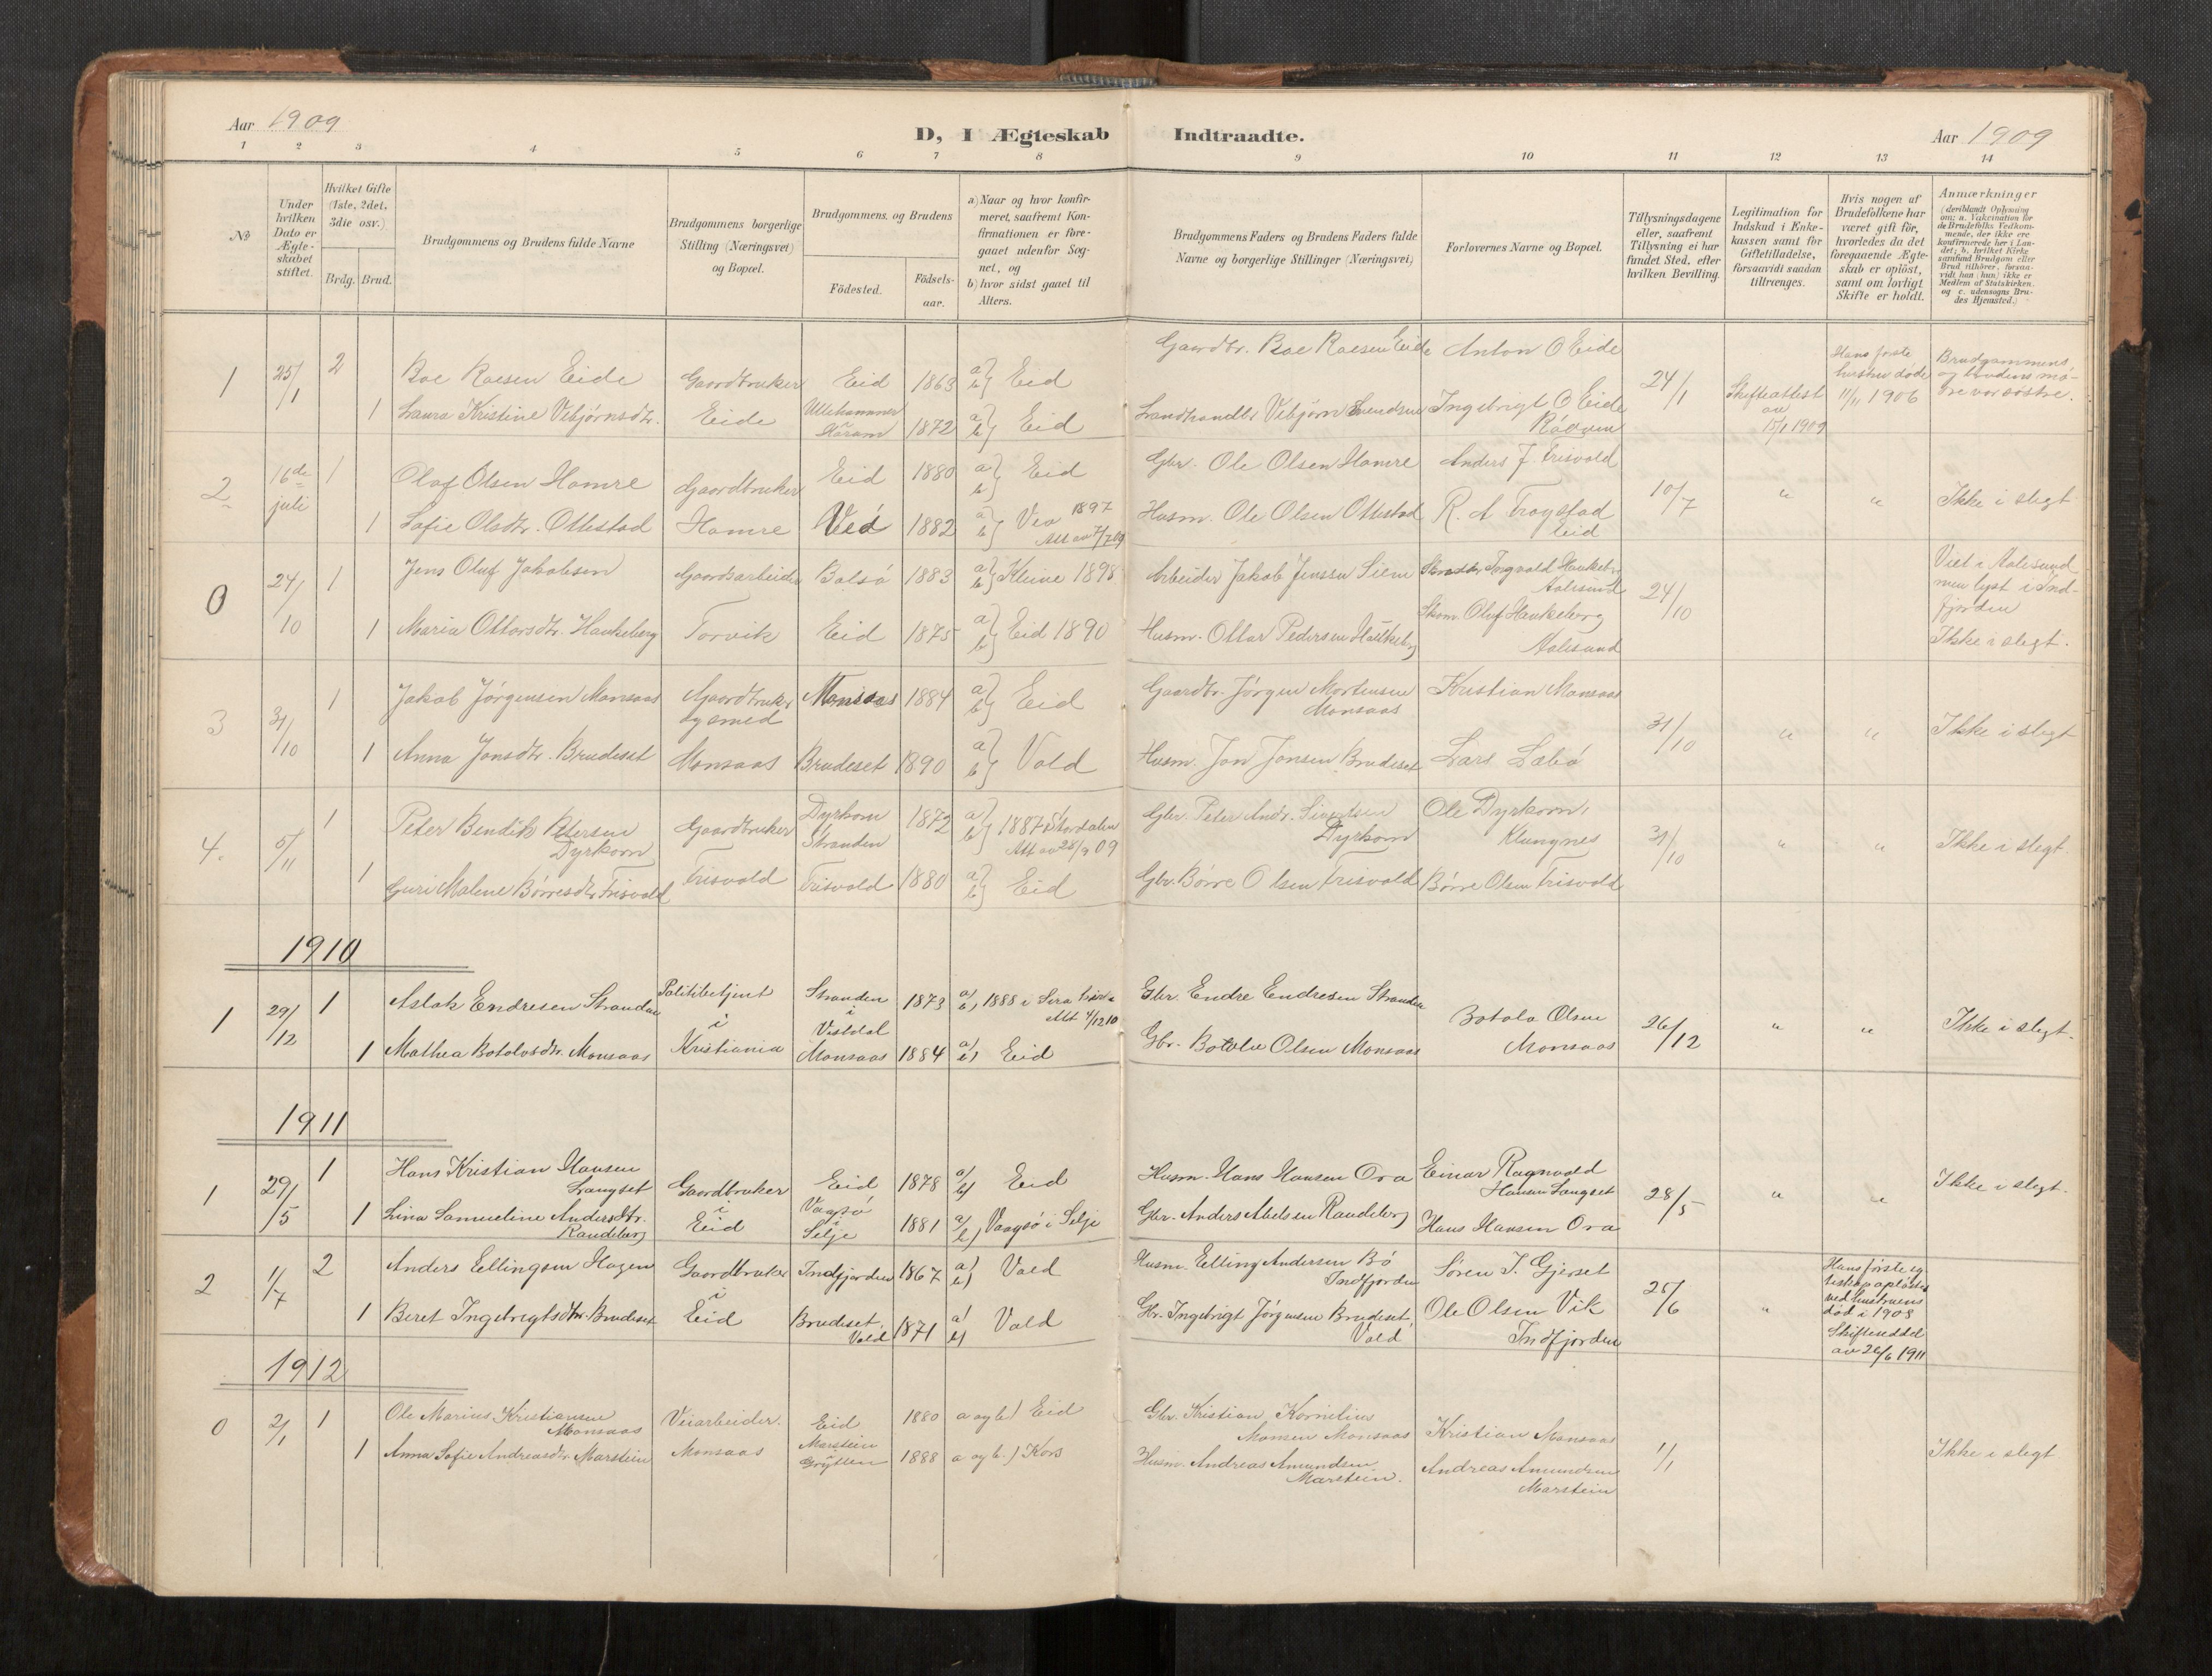 Aar 1909
D, I Ægteskab Indtraadte.
Aar 1909
1 2 3 4 5 6 7 8 9 10 11 12 13 14
No
Under hvilken Dato er Ægteskabet stiftet.
Hvilket Gifte (1ste, 2det, 3die osv.)
Brdg. Brud.
Brudgommens og Brudens fulde Navne
Brudgommens borgerlige Stilling (Næringsvei) og Bopæl.
Brudgommens og Brudens
Födested.
Födsels-aar.
a) Naar og hvor konfirmeret, saafremt Konfirmationen er foregaaet udenfor Sognet, og
b) hvor sidst gaaet til Alters.
Brudgommens Faders og Brudens Faders fulde Navne og borgerlige Stillinger (Næringsvei)
Forlovernes Navne og Bopæl.
Tillysningsdagene eller, saafremt Tillysning ei har fundet Sted, efter hvilken Bevilling.
Legitimation for Indskud i Enkekassen samt for Giftetilladelse, forsaavidt saadan tiltrænges.
Hvis nogen af Brudefolkene har været gift før, hvorledes da det foregaaende Ægteskab er oplöst, samt om lovligt Skifte er holdt.
Anmærkninger (deriblandt Oplysning om: a. Vakcination for de Brudefolks Vedkommende, der ikke ere konfirmerede her i Landet; b. hvilket Kirkesamfund Brudgom eller Brud tilhörer, forsaavidt han (hun) ikke er Medlem af Statskirken, og c. udensogns Brudes Hjemsted.)
1 25/1 2 Roe Roesen Eide Gaardbruker Eid 1863 a) b) Eid Gaardbr. Roe Roesen Eide Anton O Eide 24/1 Skifteattest av 15/1 1909 Hans første hustru døde 11/11 1906 Brudgommens og brudens mødre var søstre.
1 Laura Kristine Vebjørnsdtr. Eide Ullahammer Haram 1872 a) b) Eid Landhandler Vebjørn Svendsen Ingebrigt O Eide Rødven
2 16de juli 1 Olaf Olsen Hamre Gaardbruker Eid 1880 a) b) Eid Gbr. Ole Olsen Hamre Anders J. Frisvold 10/7 " " Ikke i slegt
1 Sofie Olsdtr. Ottestad Hamre Veø 1882 a) b) Veø 1897 Att av 7/7 09 Husm. Ole Olsen Ottestad R. A Frogstad Eid
0 24/10 1 Jens Oluf Jakobsen Gaardsarbeider Bolsø 1883 a) b) Kleive 1898 Arbeider Jakob Jenssen Siem Ingvald Haukeberg Aalesund 24/10 Viet i Aalesund men lyst i Indfjorden
1 Maria Ottarsdtr. Haukeberg Torvik Eid 1875 a) b) Eid 1890 Husm. Ottar Pedersen Haukeberg Skom. Oluf Haukeberg Aalesund Ikke i slegt.
3 31/10 1 Jakob Jørgensen Monsaas Gaardbruker og smed Monsaas 1884 a) b) Eid Gaardbr. Jørgen Mortensen Monsaas Kristian Monsaas 31/10 " " Ikke i slegt
1 Anna Jonsdtr. Brudeset Monsaas Brudeset 1890 a) b) Vold Husm. Jon Jonsen Brudeset Lars Læbø
4. 5/11 1 Peter Bendik Petersen Dyrkorn Gaardbruker Dyrkorn Stranden 1872 a) b) 1887 Stordalen Att av 28/9 09 Gbr. Peter Andr. Sivertsen Dyrkorn Ole Dyrkorn, Klungnes 31/10 " " Ikke i slegt.
1 Guri Malene Børresdtr Frisvold Frisvold Frisvold 1880 a) b) Eid Gbr. Børre Olsen Frisvold Børre Olsen Frisvold
1910
1 29/12 1 Aslak Endresen Stranden Politibetjent i Kristiania Stranden i Vistdal 1873 a) b) 1888 i Sira kirke Att 4/12 10 Gbr. Endre Endresen Stranden Botolv Olsen Monsaas 26/12 " " Ikke i slegt.
1 Mathea Botolvsdtr. Monsaas Monsaas 1884 a) b) Eid Gbr. Botolv Olsen Monsaas
1911
1 29/5 1 Hans Kristian Hansen Langset Gaardbruker i Eid Eid 1878 a) b) Eid Husm. Hans Hansen Ora Einar Ragnvald Hansen Langset 28/5 " " Ikke i slegt.
1 Lina Samueline Andersdtr. Raudeberg Vaagsø i Selje 1881 a) b) Vaagsø i Selje Gbr. Anders Abelsen Raudeberg Hans Hansen Ora
2 1/7 2 Anders Ellingsen Hagen Gaardbruker i Eid Indfjorden 1867 a) b) Vold Husm. Elling Andersen Bø Indfjorden Søren J. Gjerset 25/6 " Hans første egteskap opløstes ved hustruens død i 1908 Skifteseddel av 26/6 1911
1 Beret Ingebrigtsdtr. Brudeset Brudeset, Vold 1871 a) b) Vold Gbr. Ingebrigt Jørgensen Brudeset, Vold Ole Olsen Vik Indfjorden
1912
0 2/1 1 Ole Marius Kristiansen Monsaas Veiarbeider. Eid 1880 a og b) Eid Gbr. Kristian Kornelius Monsen Monsaas Kristian Monsaas 1/1 Ikke i slegt
1 Anna Sofie Andreasdtr. Marstein Monsaas Marstein Grytten 1888 a og b.) Kors Husm. Andreas Amundsen Marstein. Andreas Amundsen Marstein